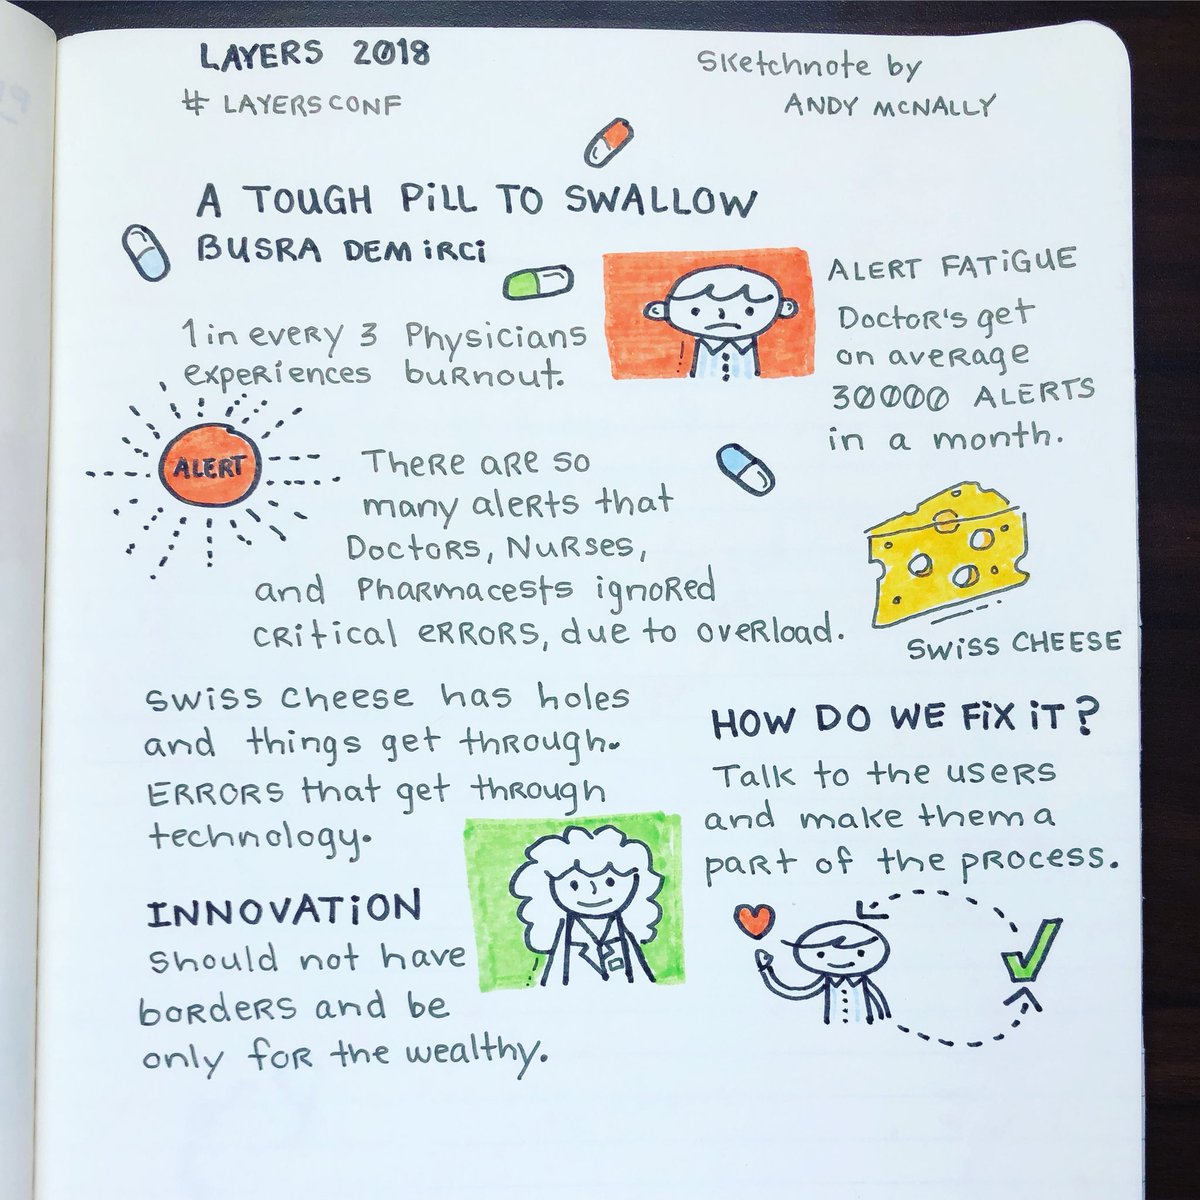 LAYERS 2018
# LAYERSCONF
Sketchnote by
ANDY MCNALLY
A TOUGH PILL TO SWALLOW
BUSRA DEMIRCI
1 in every 3 Physicians
experiences burnout.
ALERT FATIGUE
Doctor's get
on average
30000 ALERTS
in a month.
ALERT
There are so
many alerts that
Doctors, Nurses,
and Pharmacests ignored
critical errors, due to overload.
SWISS CHEESE
Swiss Cheese has holes
and things get through.
Errors that get through
technology.
HOW DO WE FIX IT?
Talk to the users
and make them a
part of the process.
INNOVATION
should not have
borders and be
only for the wealthy.